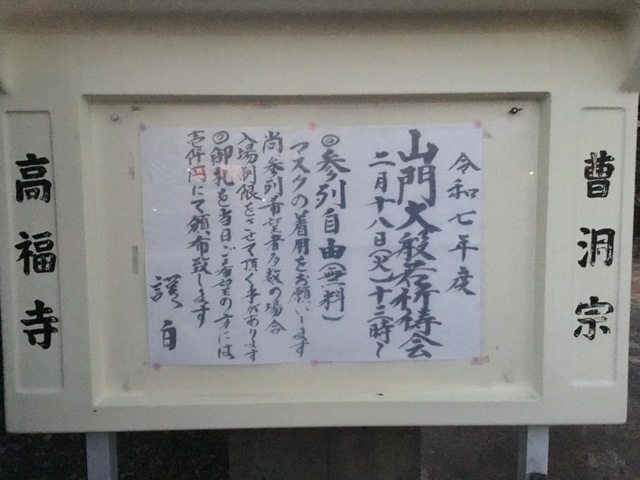 曹洞宗
令和七年度
山門大般若祈祷会
二月十八日(火)十三時〜
◎参列自由(無料)
マスクの着用をお願いします
尚参列希望者多数の場合
入場制限をさせて頂く事があります
◎御札を当日ご希望の方には
壱仟円にて頒布致します
謹白
高福寺